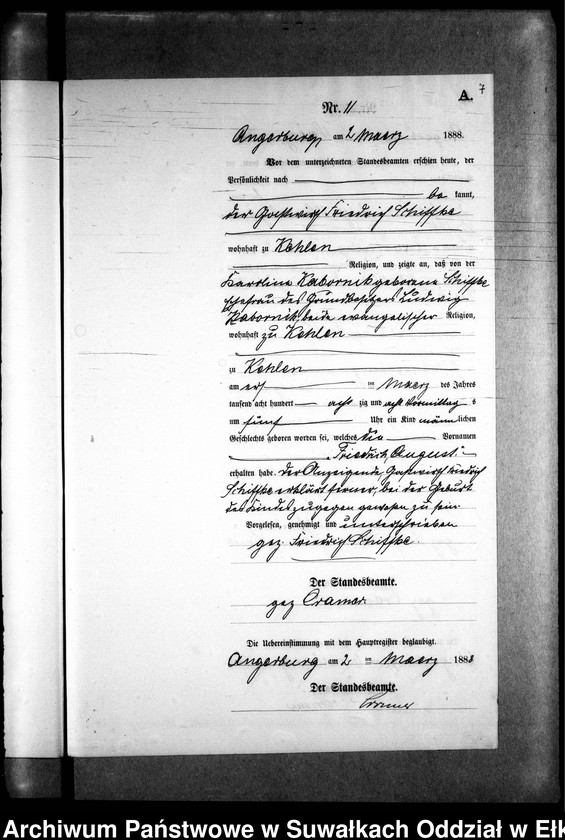 A. 7
Nr. 11
Angerburg, am 2 Maerz 1888.
Vor dem unterzeichneten Standesbeamten erschien heute, der
Persönlichkeit nach
be kannt,
der Gastwirth Friedrich Schiffke
wohnhaft zu Kehlen
Religion, und zeigte an, daß von der
Karoline Kabornik geborene Schiffke
Ehefrau des Grundbesitzers Ludwig
Kabornik, beide evangelischer Religion,
wohnhaft zu Kehlen
zu Kehlen
am ers ten Maerz des Jahres
tausend acht hundert acht zig und acht Vormittag s
um fünf Uhr ein Kind männ lichen
Geschlechts geboren worden sei, welches die Vornamen
Friedrich, August
erhalten habe. Der Anzeigende, Gastwirth Friedrich
Schiffke erklärt ferner, bei der Geburt
des Kindes zugegen gewesen zu sein
Vorgelesen, genehmigt und unterschrieben
gez. Friedrich Schiffke.
Der Standesbeamte.
gez Cramer
Die Uebereinstimmung mit dem Hauptregister beglaubigt.
Angerburg am 2 ten Maerz 1888
Der Standesbeamte.
Cramer
Archiwum Państwowe w Suwałkach Oddział w Ełk